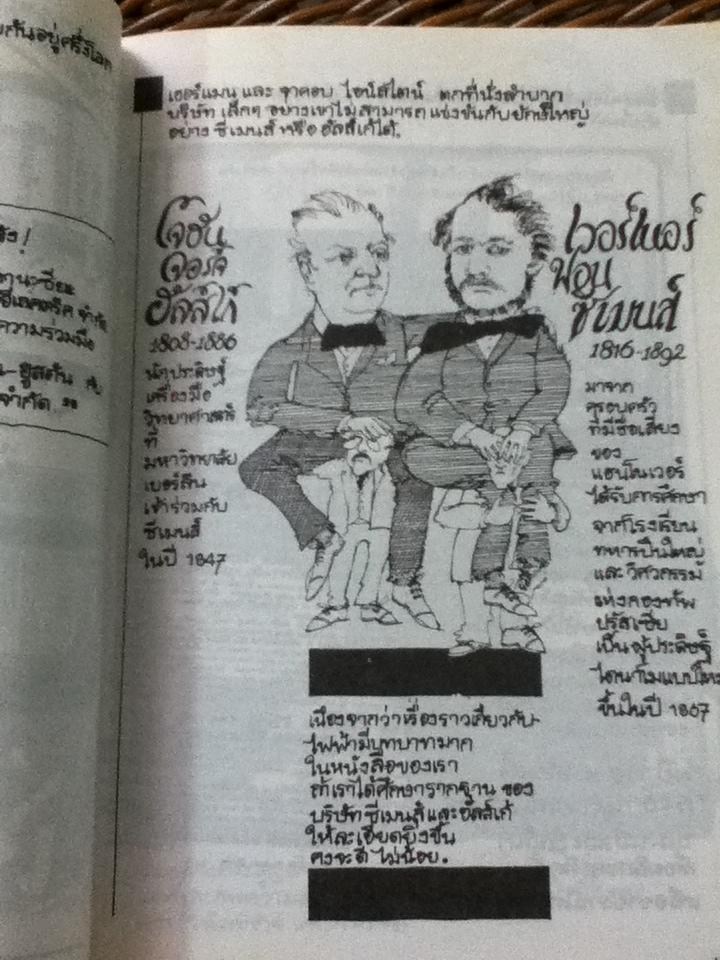 กันอยู่ครึ่งโลก
เฮอร์แมน และ จาคอบ ไอน์สไตน์ ตกที่นั่งลำบาก
บริษัท เล็กๆ อย่างเขาไม่สามารถ แข่งขันกับยักษ์ใหญ่
อย่าง ซีเมนส์ หรือ ฮัลส์เก้ได้.
โจฮัน
จอร์จ
ฮัลส์เก้
1808-1886
นักประดิษฐ์
เครื่องมือ
วิทยาศาสตร์
ที่
มหาวิทยาลัย
เบอร์ลิน
เข้าร่วมกับ
ซีเมนส์
ในปี 1847
เวอร์เนอร์
ฟอน
ซีเมนส์
1816-1892
มาจาก
ครอบครัว
ที่มีชื่อเสียง
ของ
แฮนโนเวอร์
ได้รับการศึกษา
จากโรงเรียน
ทหารปืนใหญ่
และวิศวกรรม
แห่งกองทัพ
ปรัสเซีย
เป็นผู้ประดิษฐ์
ไดนาโมแบบใหม่
ขึ้นในปี 1867
เนื่องจากว่าเรื่องราวเกี่ยวกับ
ไฟฟ้ามีบทบาทมาก
ในหนังสือของเรา
ถ้าเราได้ศึกษารากฐาน ของ
บริษัท ซีเมนส์ และฮัลส์เก้
ให้ละเอียดยิ่งขึ้น
คงจะดี ไม่น้อย.
ความร่วมมือ
จำกัด